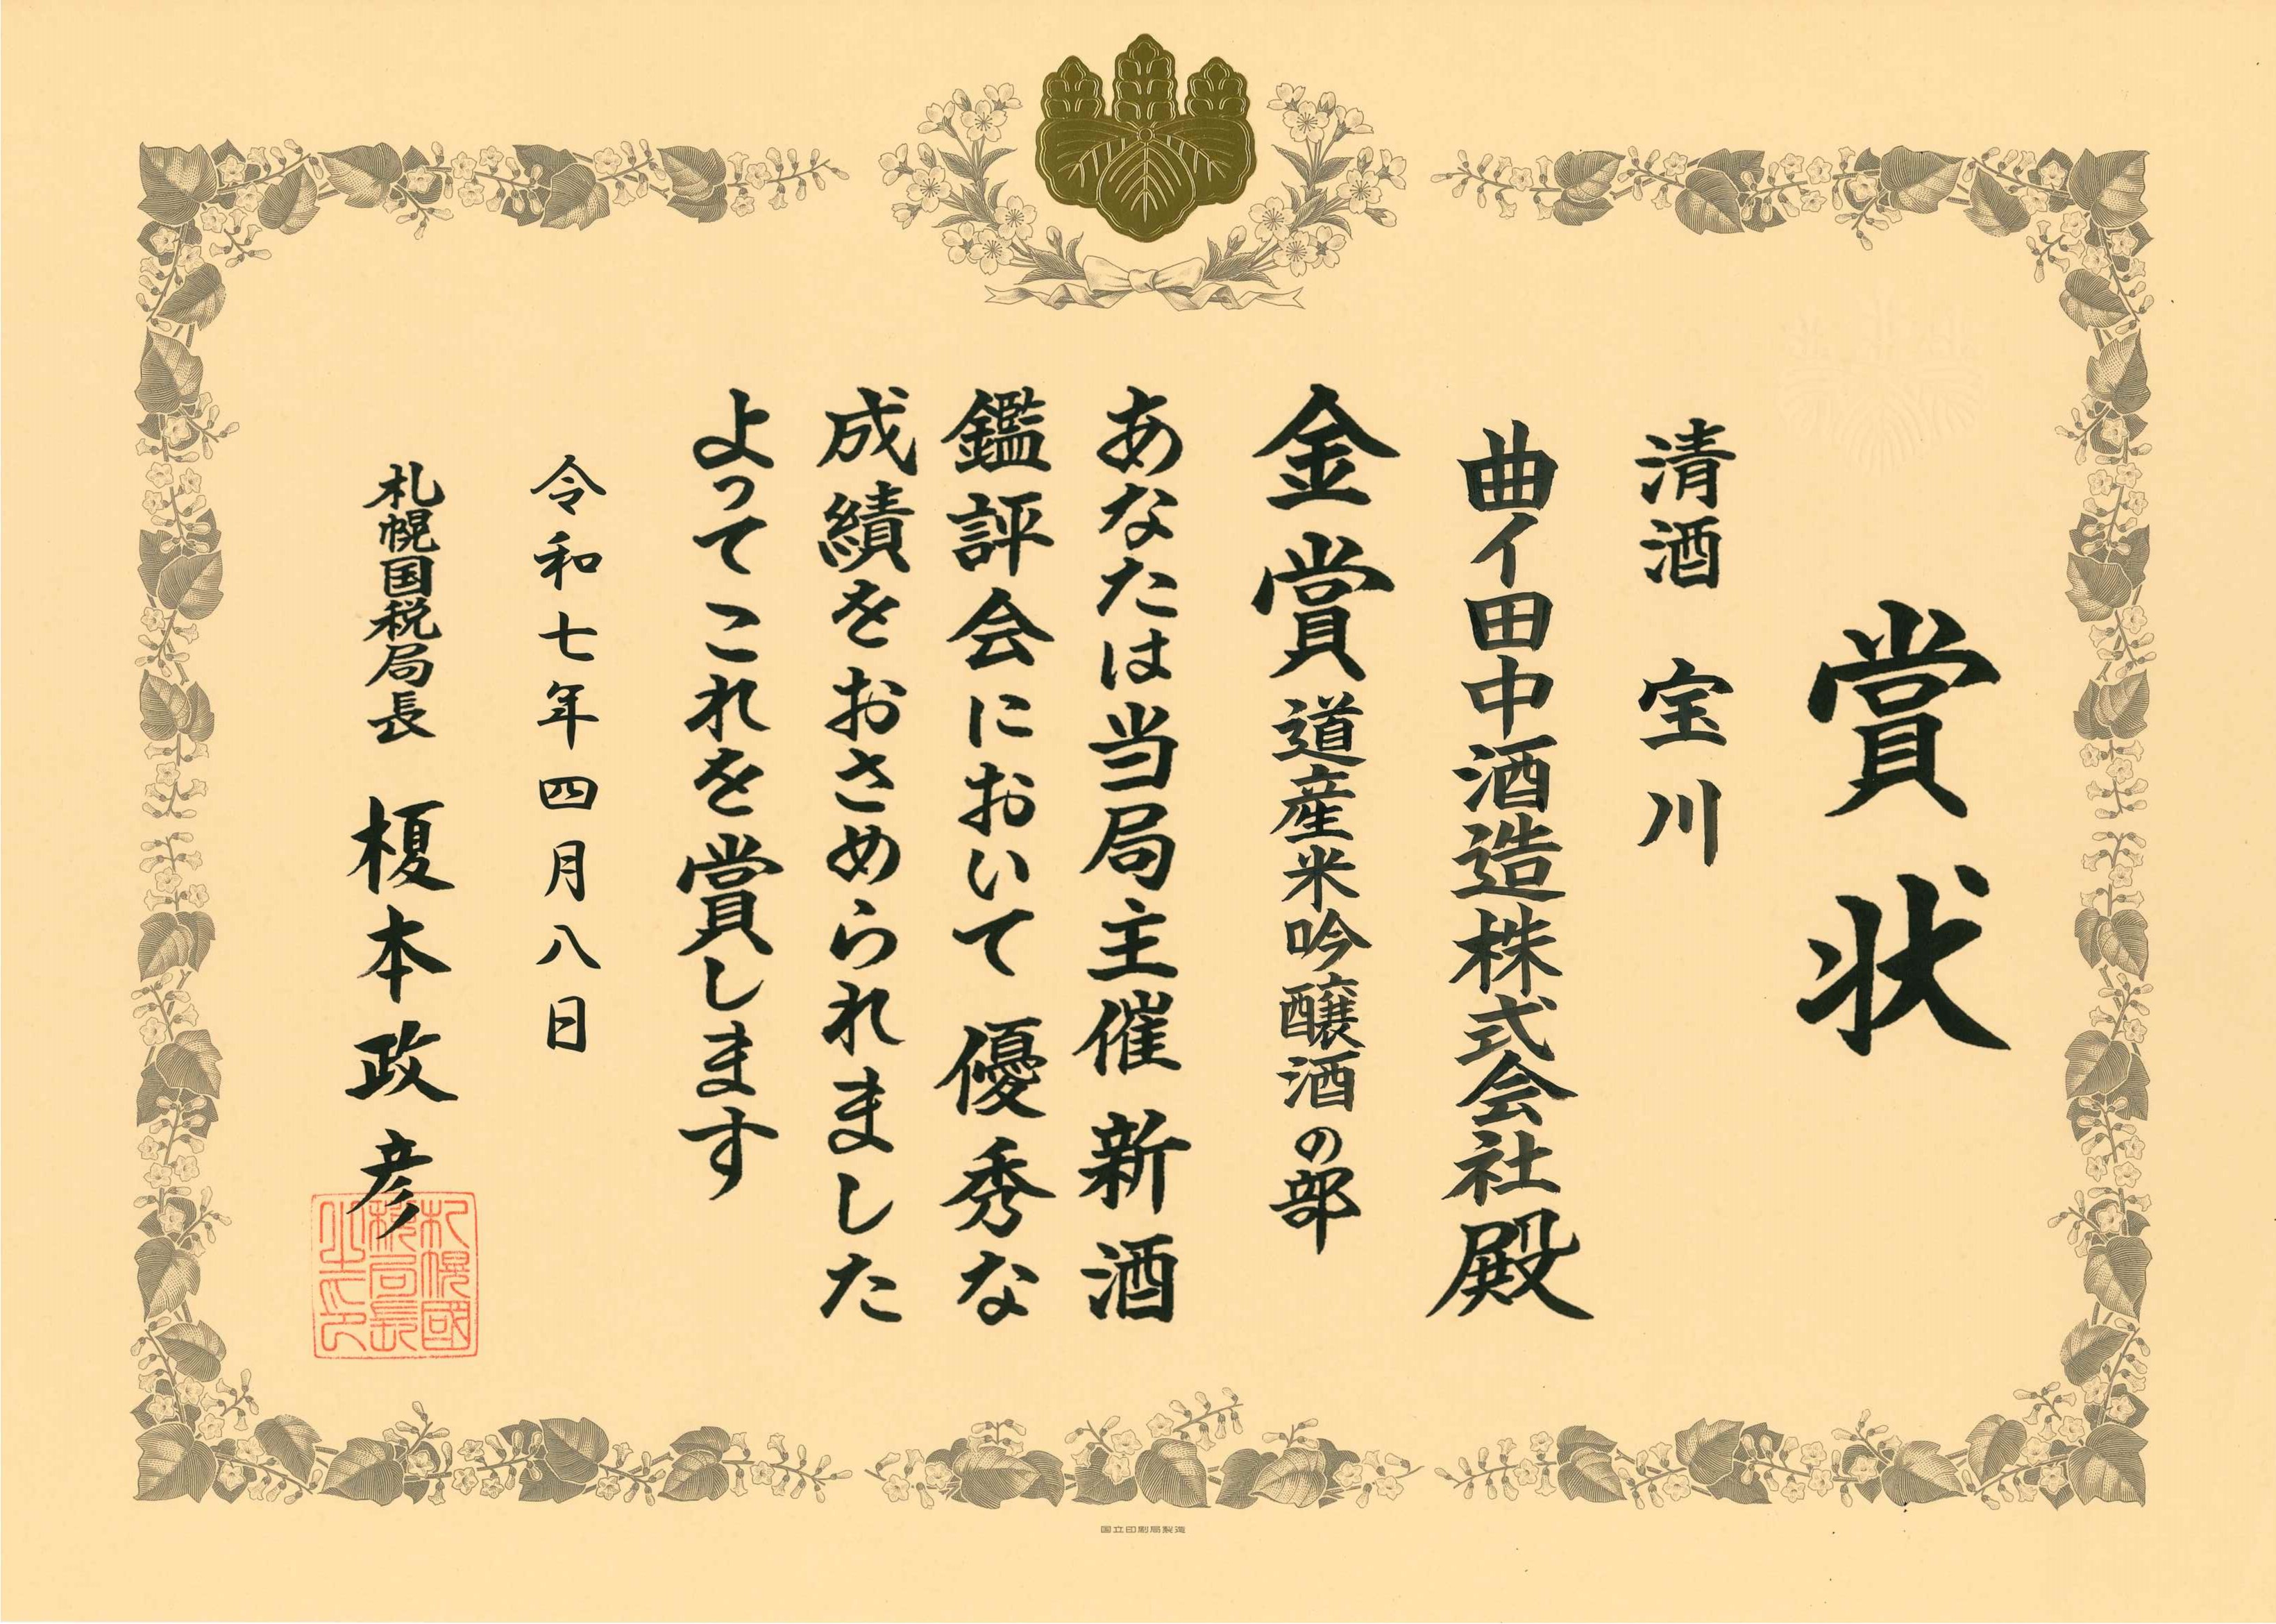 賞状
清酒 宝川
曲イ田中酒造株式会社殿
金賞 道産米吟醸酒の部
あなたは当局主催新酒
鑑評会において優秀な
成績をおさめられました
よってこれを賞します
令和七年四月八日
札幌国税局長 榎本政彦
札幌國
税局長
之印
国立印刷局製造